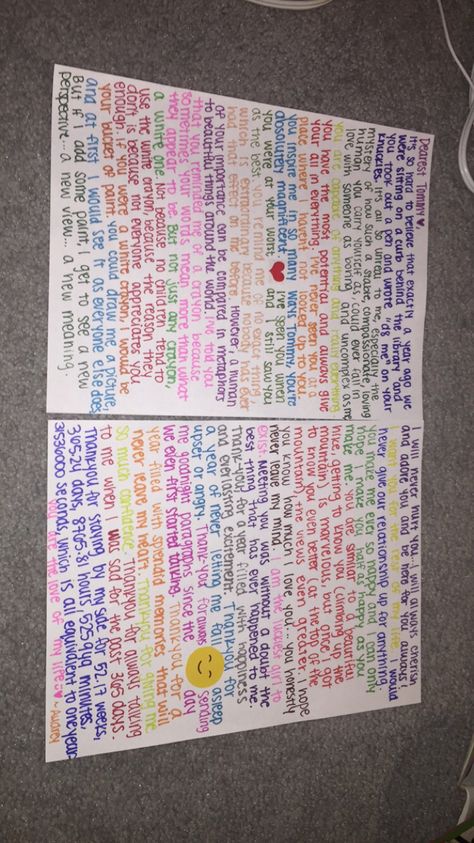 Dearest Tommy ♥
It's so hard to believe that exactly a year ago we
were sitting on a curb behind the library and
you took out a pen and wrote "d8 me" on your
knuckles. It's all so unreal to me, especially the
mystery of how such a stable, compassionate, loving
human you carry yourself as, could ever fall in
love with someone as boring and uncomplex as me.
you are capable of anything and everything.
you have the most potential and always give
your all in everything. I've never seen you in a
place where I haven't not looked up to you.
You inspire me in so many ways Tommy, you're
absolutely magnificent. I've seen you when
you were at your worst ♥ and I still saw you
as the best. you remind me of no exact thing
which is extraordinary because nobody has ever
had that effect on me before. However, a human
of your importance can be compared in metaphors
to beautiful things around the world. I've told you
that you reminded me of a crayon because
sometimes your words mean more than what
they appear to be. But not just any crayon,
a white one. Not because no children tend to
use the white crayon, because the reason they
don't is because not everyone appreciates you
enough. If you were a white crayon, I would be
your bucket of paint. You could draw me a picture,
and at first I would see it as everyone else does,
But if I add some paint, I get to see a new
perspective... a new view... a new meaning.
I will never hurt you. I will always cherish
I adore you and I'll be here for you always
I want you for the rest of my life. I would
never give our relationship up for anything.
you make me ever so happy and I can only
hope I make you half as happy as you
make me. you are similar to a beautiful
hike, getting to know you (climbing the
mountain) is marvelous, but once I got
to know you even better (at the top of the
mountain), the views even greater. I hope
you know how much I love you... you honestly
never leave my mind. I am the luckiest girl to
exist. Meeting you was without a doubt the
best thing that has ever happened to me.
Thank-you for a year filled with happiness
and everlasting excitement. Thankyou for
a year of never letting me fall asleep
upset or angry. Thank-you for always sending
me goodnight paragraphs since the day
we even first started talking. Thankyou for a
year filled with splendid memories that will
never leave my heart. Thankyou for giving me
so much confidence. Thankyou for always talking
to me when I was sad for the past 365 days.
Thankyou for staying by my side for 52.17 weeks,
365.24 days, 8765.81 hours, 525,949 minutes,
seconds, which is all equivalent to one year.
you are the love of my life. ~Audrey